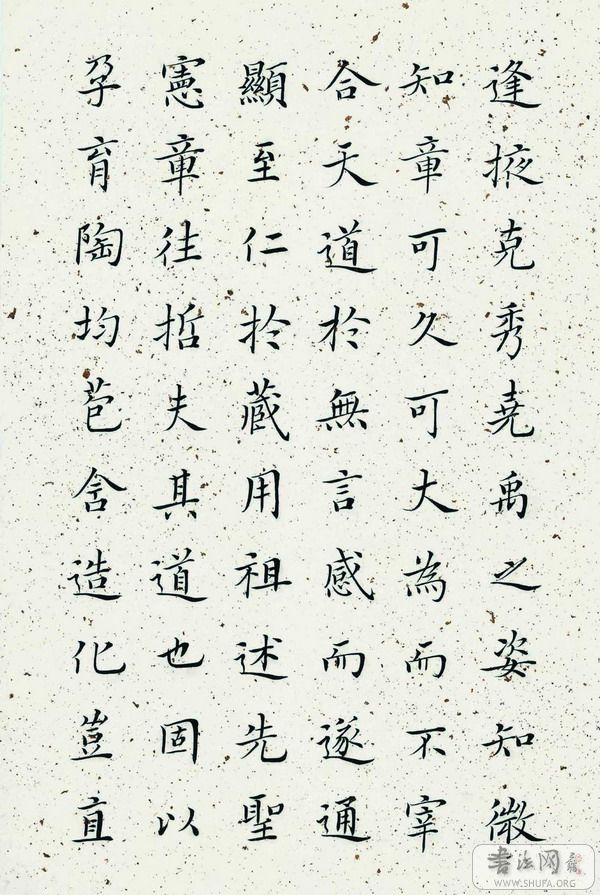 逢掖克秀堯禹之姿知微
知章可久可大為而不宰
合天道於無言感而遂通
顯至仁扵藏用祖述先聖
憲章往哲夫其道也固以
孕育陶均苞含造化豈直
书法网
WWW.SHUFA.ORG